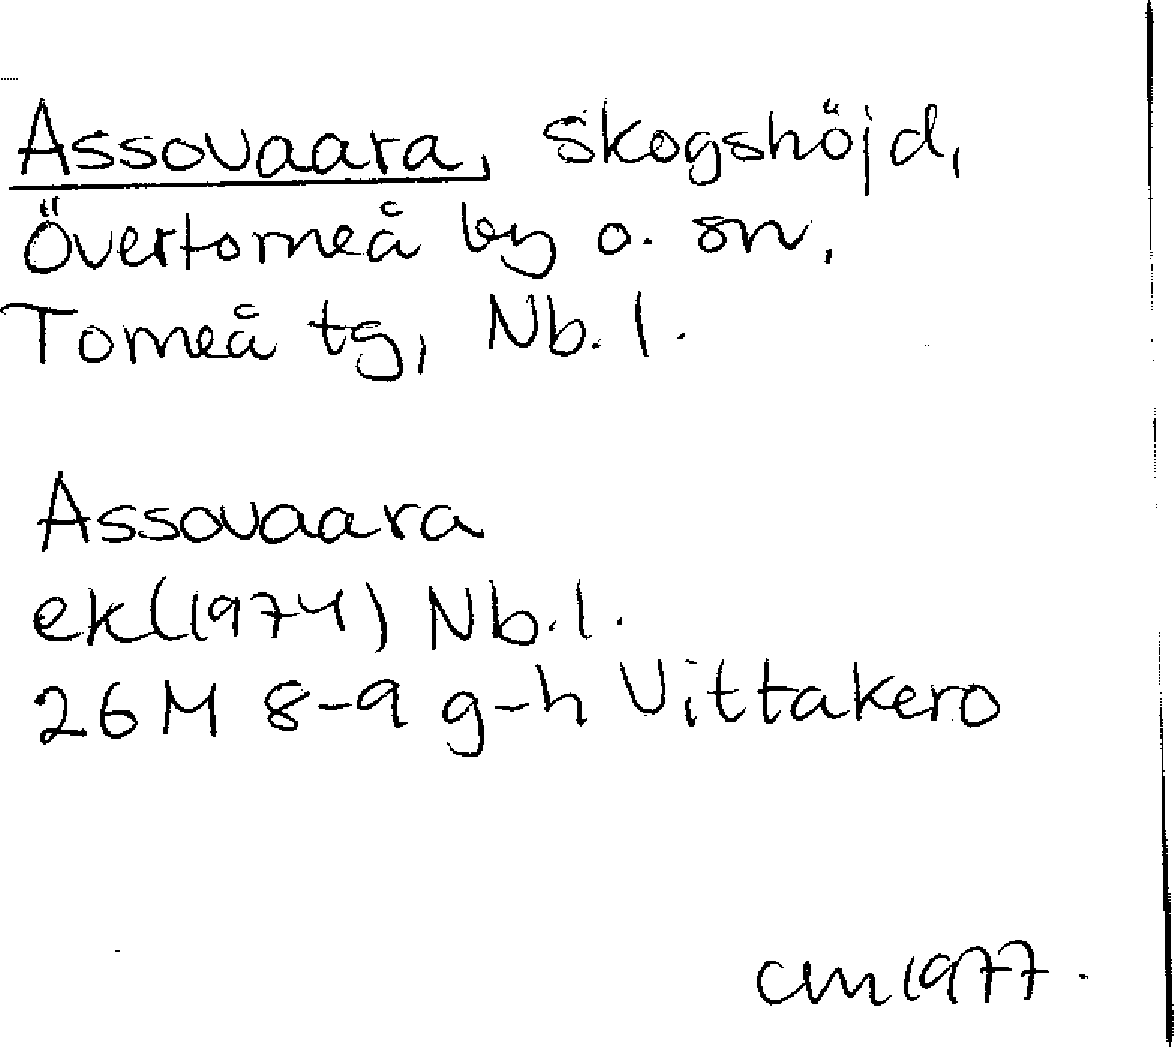 Assovaara, skogshöjd,
Övertorneå by o. sn,
Torneå tg, Nb. l.
Assovaara
ek(1974) Nb. l.
26 M 8-9 g-h Vittakero
CM 1977.